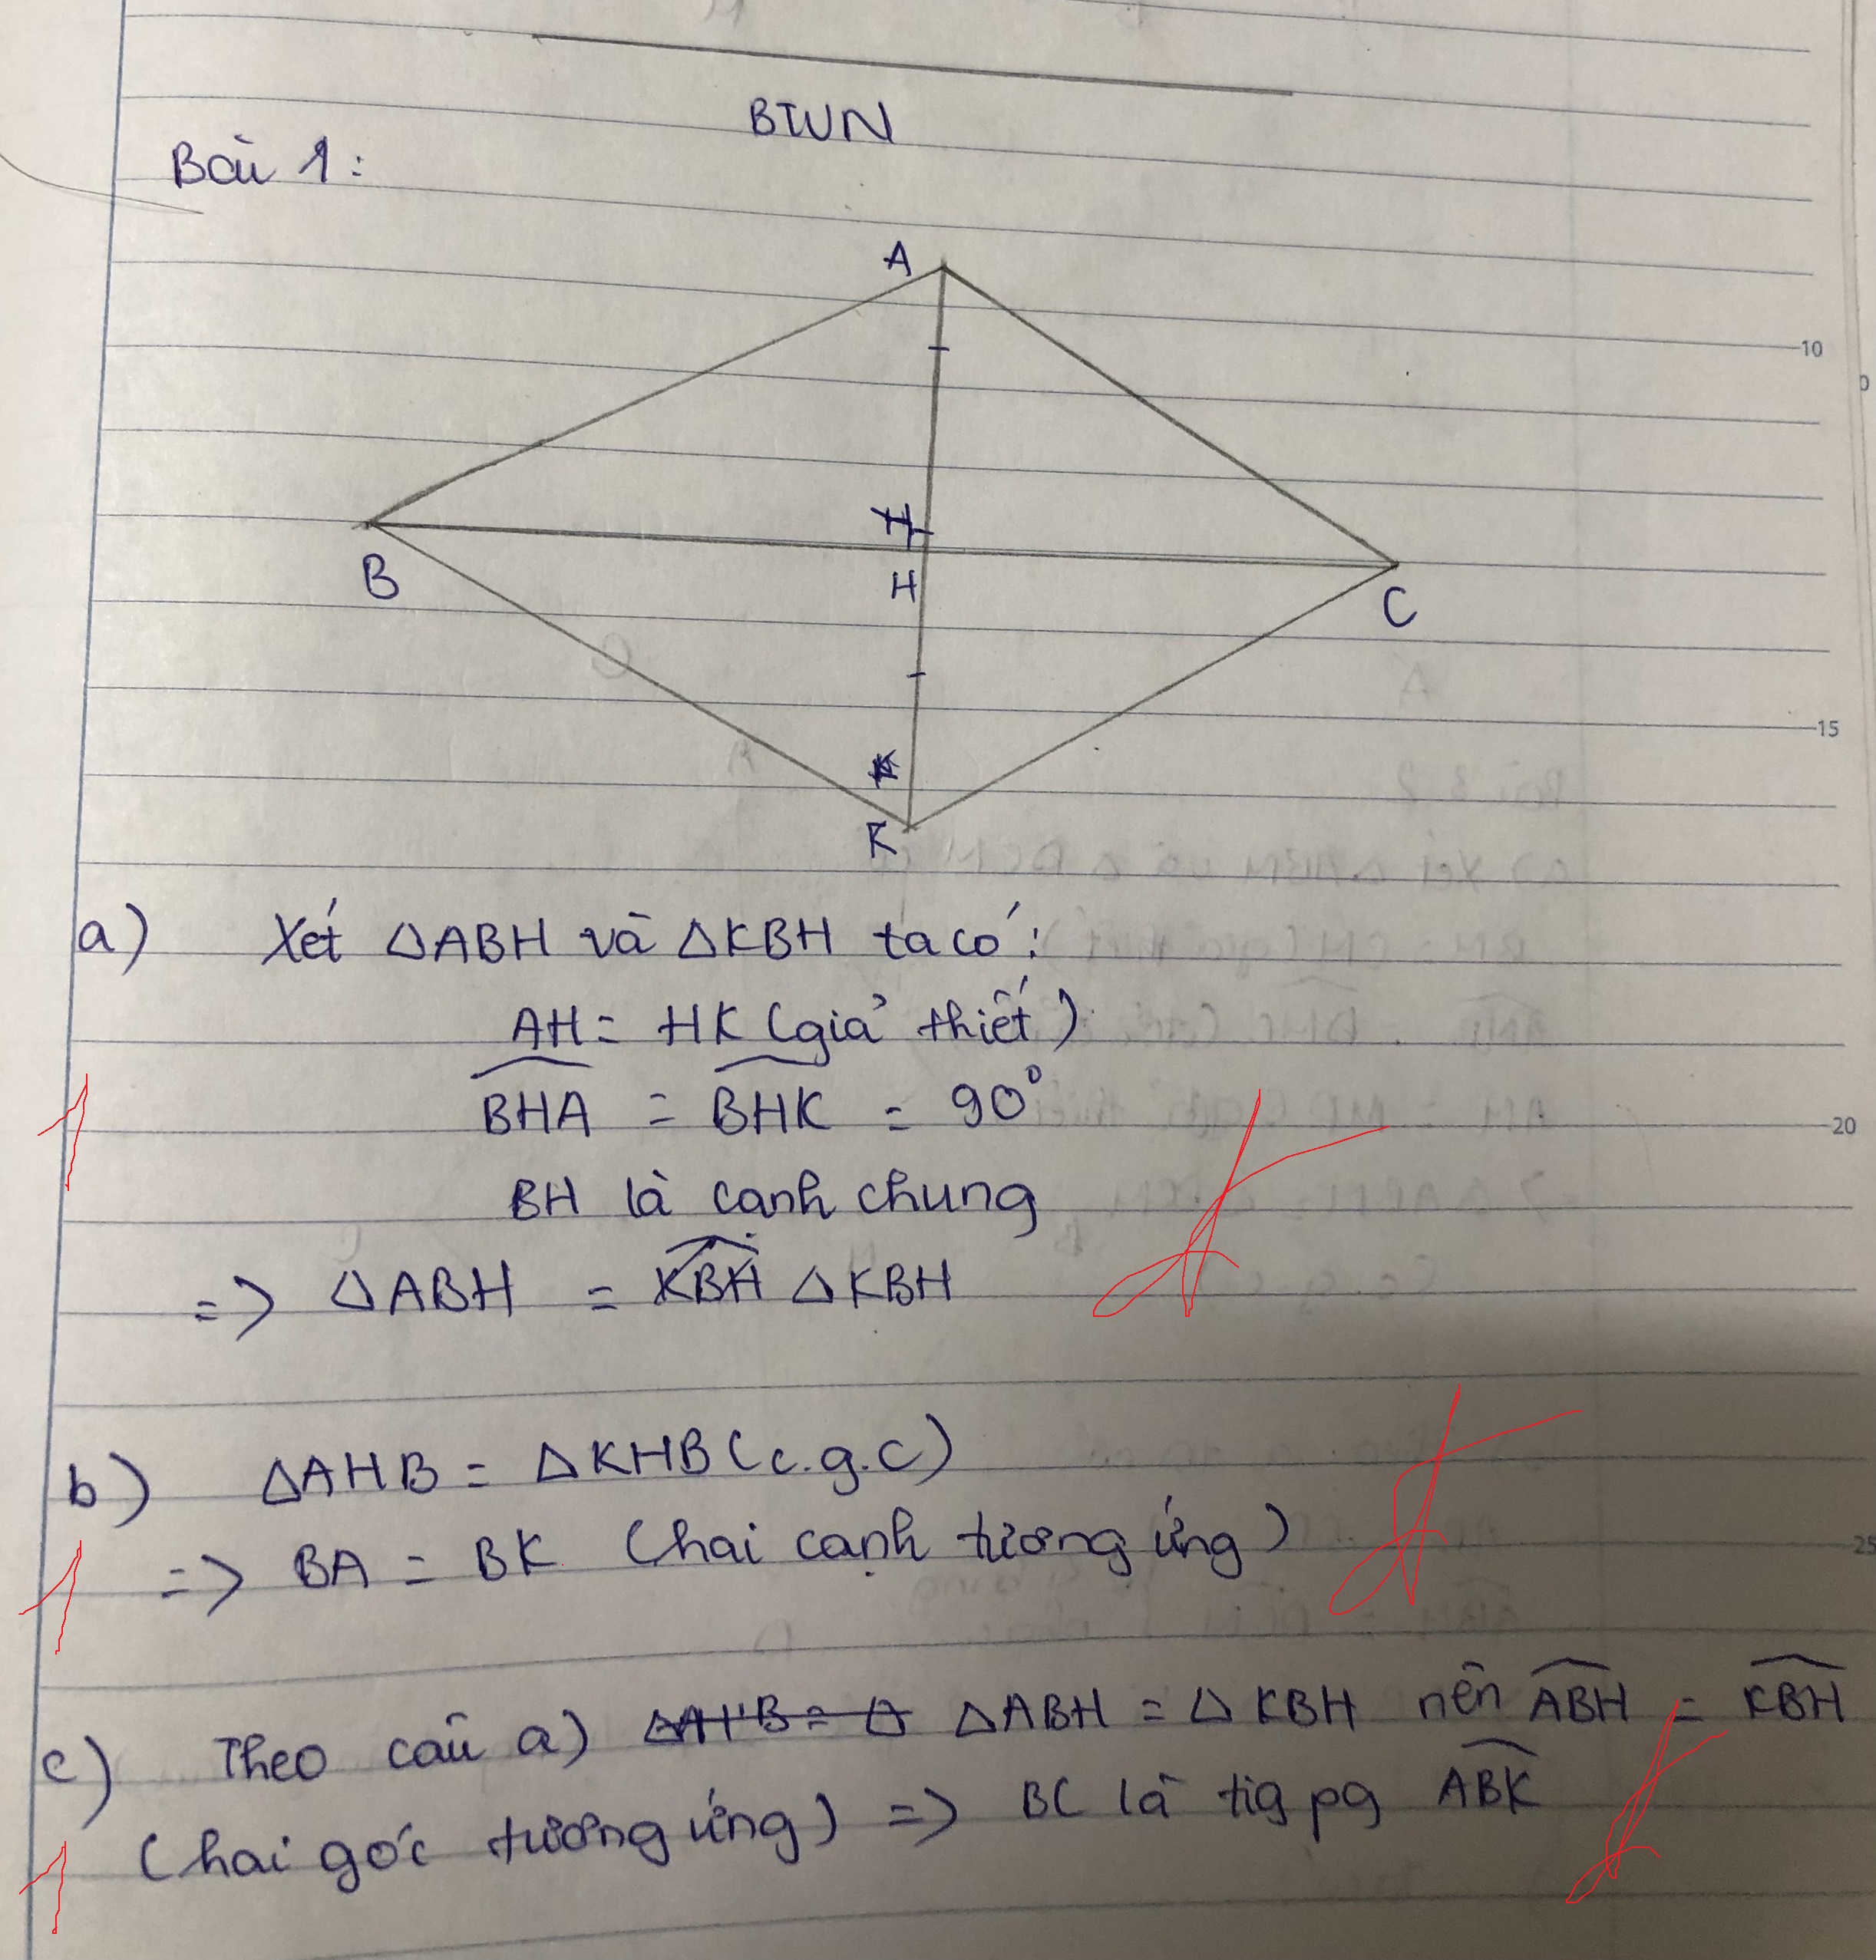 BTVN
Bài 1:
A
10
H
B
H
C
15
K
a) Xét ΔABH và ΔKBH ta có:
AH = HK (giả thiết)
1
BHA = BHK = 90°
20
BH là cạnh chung
=> ΔABH = KBH ΔKBH
b) ΔAHB = ΔKHB (c.g.c)
1
=> BA = BK (hai cạnh tương ứng)
25
c) Theo câu a) ΔAHB = Δ ΔABH = ΔKBH nên ABH = KBH
1
(hai góc tương ứng) => BC là tig pg ABK